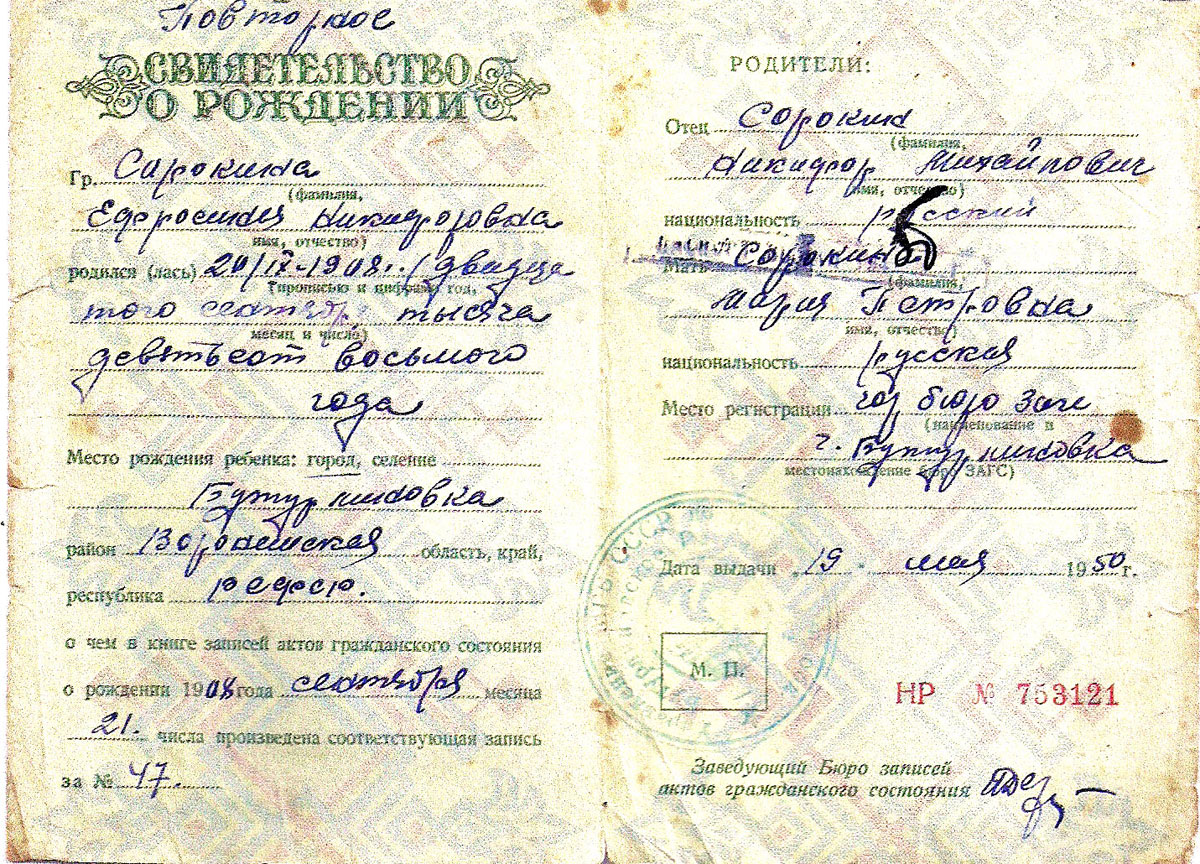 Повторное
СВИДЕТЕЛЬСТВО
О РОЖДЕНИИ
Гр. Сорокина
(фамилия,
Ефросиния Никифоровна
имя, отчество)
родился (лась) 20/IX-1908г. /двадца
(прописью и цифрами год,
того сентября тысяча
месяц и число)
девятьсот восьмого
года
Место рождения ребенка: город, селение
Бутурлиновка
район Воронежская область, край,
республика РСФСР.
о чем в книге записей актов гражданского состояния
о рождении 1908 года сентября месяца
21. числа произведена соответствующая запись
за № 47.
РОДИТЕЛИ:
Отец Сорокин
(фамилия,
Никифор Михайлович
имя, отчество)
национальность русский
Мать Сорокина
(фамилия,
Мария Петровна
имя, отчество)
национальность русская
Место регистрации гор бюро загс
(наименование и
г. Бутурлиновка
местонахождение бюро ЗАГС)
Дата выдачи „19" мая 1950 г.
М. П.
НР № 753121
Заведующий Бюро записей
актов гражданского состояния